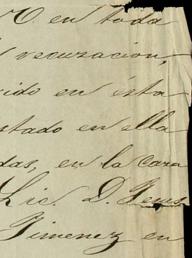 O en toda
recusacion,
ido en ésta
stado en ella
das, en la cara
Lic. D. Jesus
Gimenez en